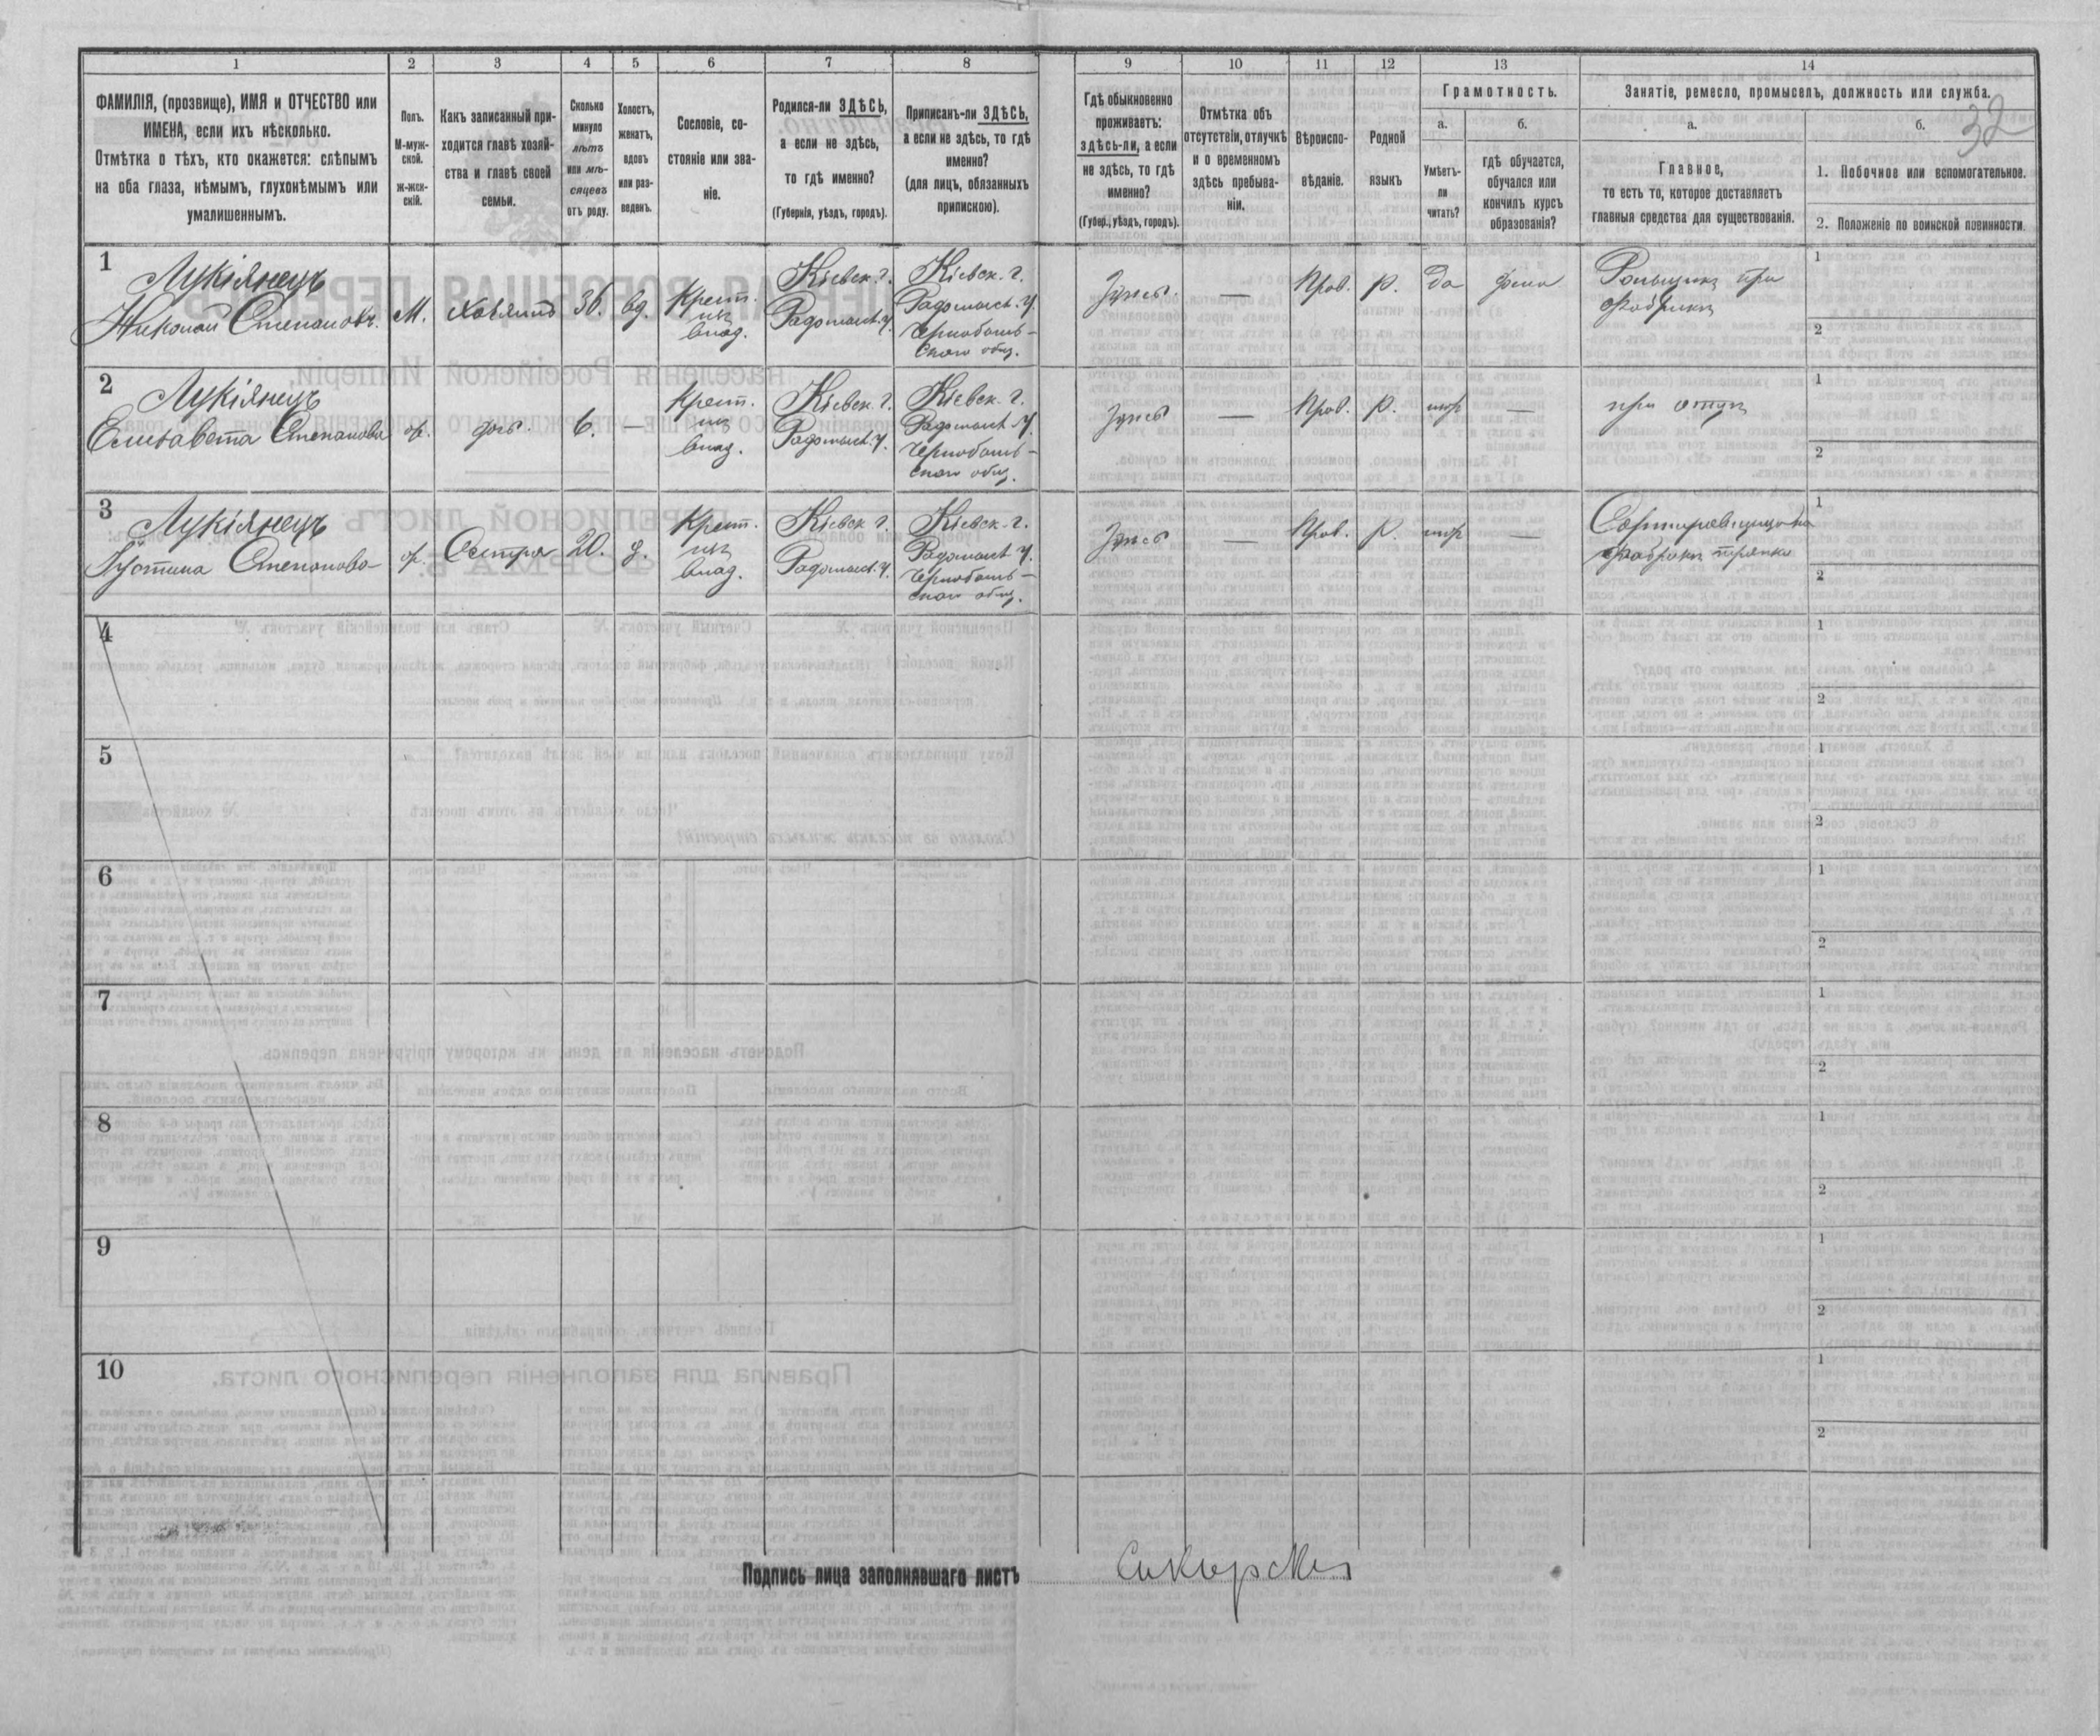 1 2 3 4 5 6 7 8 9 10 11 12 13 14
32
ФАМИЛІЯ, (прозвище), ИМЯ и ОТЧЕСТВО или
ИМЕНА, если ихъ нѣсколько.
Отмѣтка о тѣхъ, кто окажется: слѣпымъ
на оба глаза, нѣмымъ, глухонѣмымъ или
умалишеннымъ.
Полъ.
М-муж-
ской.
ж-жен-
скій.
Какъ записанный при-
ходится главѣ хозяй-
ства и главѣ своей
семьи.
Сколько
минуло
лѣтъ
или мѣ-
сяцевъ
отъ роду.
Холостъ,
женатъ,
вдовъ
или раз-
веденъ.
Сословіе, со-
стояніе или зва-
ніе.
Родился-ли ЗДѢСЬ,
а если не здѣсь,
то гдѣ именно?
(Губернія, уѣздъ, городъ).
Приписанъ-ли ЗДѢСЬ,
а если не здѣсь, то гдѣ
именно?
(для лицъ, обязанныхъ
припискою).
Гдѣ обыкновенно
проживаетъ:
здѣсь-ли, а если
не здѣсь, то гдѣ
именно?
(Губер., уѣздъ, городъ).
Отмѣтка объ
отсутствіи, отлучкѣ
и о временномъ
здѣсь пребыва-
ніи.
Вѣроиспо-
вѣданіе.
Родной
языкъ
Грамотность.
а.
Умѣетъ-
ли
читать?
б.
гдѣ обучается,
обучался или
кончилъ курсъ
образованія?
Занятіе, ремесло, промыселъ, должность или служба.
а.
Главное,
то есть то, которое доставляетъ
главныя средства для существованія.
б.
1. Побочное или вспомогательное.
2. Положеніе по воинской повинности.
1
Лукіянецъ
Николай Степановъ.
М.
хозяинъ
36.
вд.
Крест.
изъ
влад.
Кіевск. г.
Радомысл. у.
Кіевск. г.
Радомысл. у.
Чернобыль-
скаго общ.
Здѣсь.
—
Прав.
р.
да
дома
при
фабрикѣ
1
2
2
Лукіянецъ
Елисавета Степанова
ж.
дочь.
6.
—
Крест.
изъ
влад.
Кіевск. г.
Радомысл. у.
Кіевск. г.
Радомысл. у.
Чернобыль-
скаго общ.
Здѣсь
—
Прав.
р.
нѣт
—
при отцѣ
1
2
3
Лукіянецъ
Устина Степанова
ж.
Сестра
20.
д.
Крест.
изъ
влад.
Кіевск. г.
Радомысл. у.
Кіевск. г.
Радомысл. у.
Чернобыль-
скаго общ.
Здѣсь
—
Прав.
р.
нѣт
—
Сортировщица на
фабрикѣ тряпки
1
2
4
1
2
5
1
2
6
1
2
7
1
2
8
1
2
9
1
2
10
1
2
Подпись лица заполнявшаго листъ